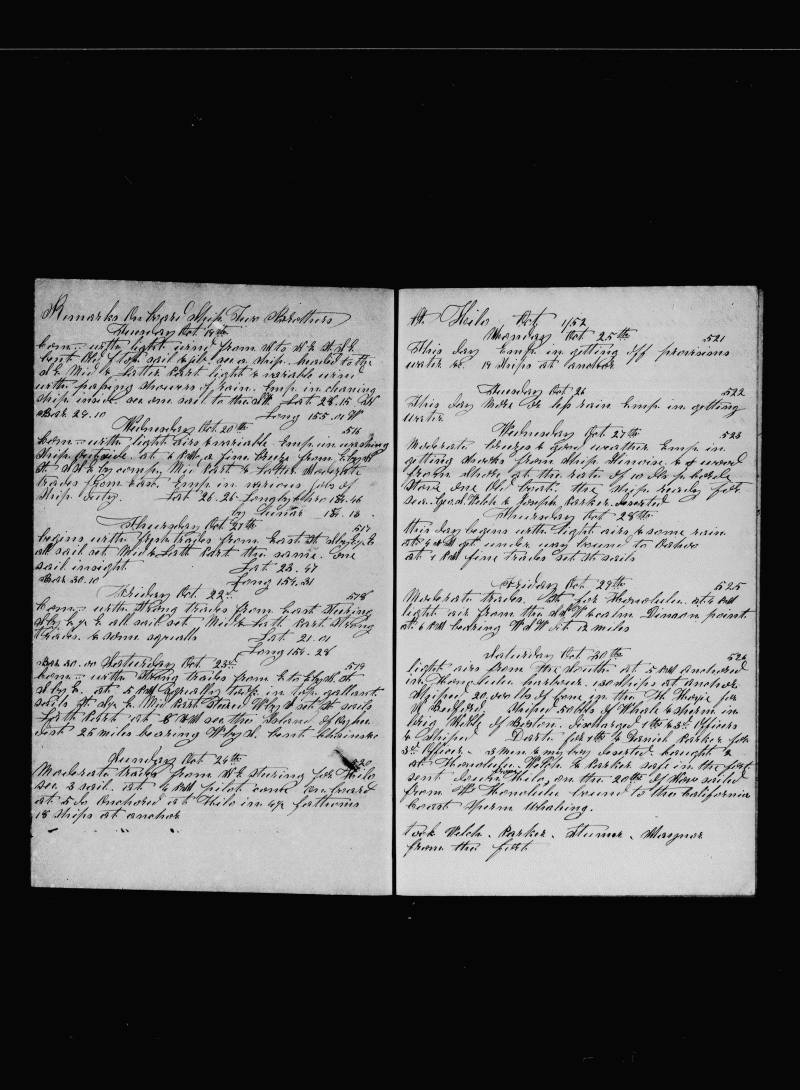 Remarks On board Ship Two Brothers
Tuesday Oct 19th
Com— with light wind from N to N E St S E
bent Fly & top sail & jib see a ship headed to the
S E Mid & Latter Part light & variable wind
with passing showers of rain. Emp in cleaning
ship inside. see one sail to the St Lat 28.15 N
Bar 29.10 Long 155.01 W
Wednesday Oct 20th 516
Com— with light airs & variable Emp in washing
Ship outside at 6 P.M. a fine Breeze from E by N
St S S E by comp Mid Part & Latter Moderate
trades from East Emp in various jobs of
Ship duty. Lat 26.26 Long by Chro 154.46
by Lunar 154.13
Thursday Oct 21th 517
begins with fresh trades from East St S by E ½ E
all sail set Mid & Lath Part the same. One
sail in sight Lat 23.47
Bar 30.10 Long 154.31
Friday Oct 22d 518
Com— with Strong trades from East Steering
S by E ½ E all sail set Mid & Lath Part Strong
trades & some squalls Lat 21.01
Long 154.28
Bar 30.00 Saturday Oct 23d 519
Com— with Strong trades from E to E by N St
S by E. at 5 P.M. squally took in top gallant
sails St S ½ E Mid Part Steered W by S set St sails
Lath Part at 8 A.M see the Island of
dist 25 miles bearing W by S. bent Chains
Sunday Oct 24th 520
Moderate trades from N E steering for Hilo
see 3 sail. at 4 P.M pilot came on board
at 5 do Anchored at Hilo in 4½ fathoms
18 ships at anchor
At Hilo Oct 1/52
Monday Oct 25th 521
This day Emp in getting off provisions
water &c 19 ships at anchor
Tuesday Oct 26 522
This day more or less rain Emp in getting
water
Wednesday Oct 27th 523
Moderate breezes & fine weather Emp in
getting shooks from Ship Illinois & 4 wood
from shore at the rate of 10 dls p barrel
Stove One Bld boat. the ship ready for
sea. Geo. d. Welch & Joseph Parker deserted
Thursday Oct 28th
this day begins with light airs & some rain
at 4 A M got under way bound to Oahu
at 1 P.M fine trades set St sails
Friday Oct 29th 525
Moderate trades. St for Honolulu at 4 P.M
light air from the S d & W & calm Dimon point
at 6 P.M bearing W d W St 12 miles
Saturday Oct 30th 526
light airs from the South at 5 P.M Anchored
in Honolulu harbour. 150 Ships at Anchor
Shiped 20,000 lbs of bone in the Sh Hope for
N Bedford. Shiped 50 bbls of Whale & Sperm in
brig Wolf of Boston. discharged 1st & 3d Officers
& Shiped Dart for 1th & Daniel Parker for
3d Officer - 3 men & my boy deserted bought 2
at Honolulu Welch & Parker safe in the fort
sent down from Hilo, on the 20th of Nov sailed
from Honolulu bound to the California
coast Sperm Whaling.
took Welch. Parker. Maynor
from the fort